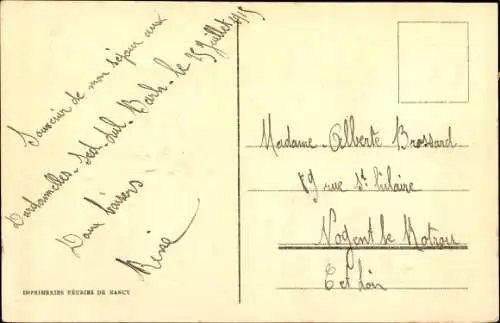 Souvenir de mon séjour aux
Dardannelles - Sed-dul-Barh - le 25 Juillet 1915
Doux baisers
Madame Alberte Brossard
89 rue St Hilaire
Nogent le Rotrou
E et Loir
IMPRIMERIES RÉUNIES DE NANCY